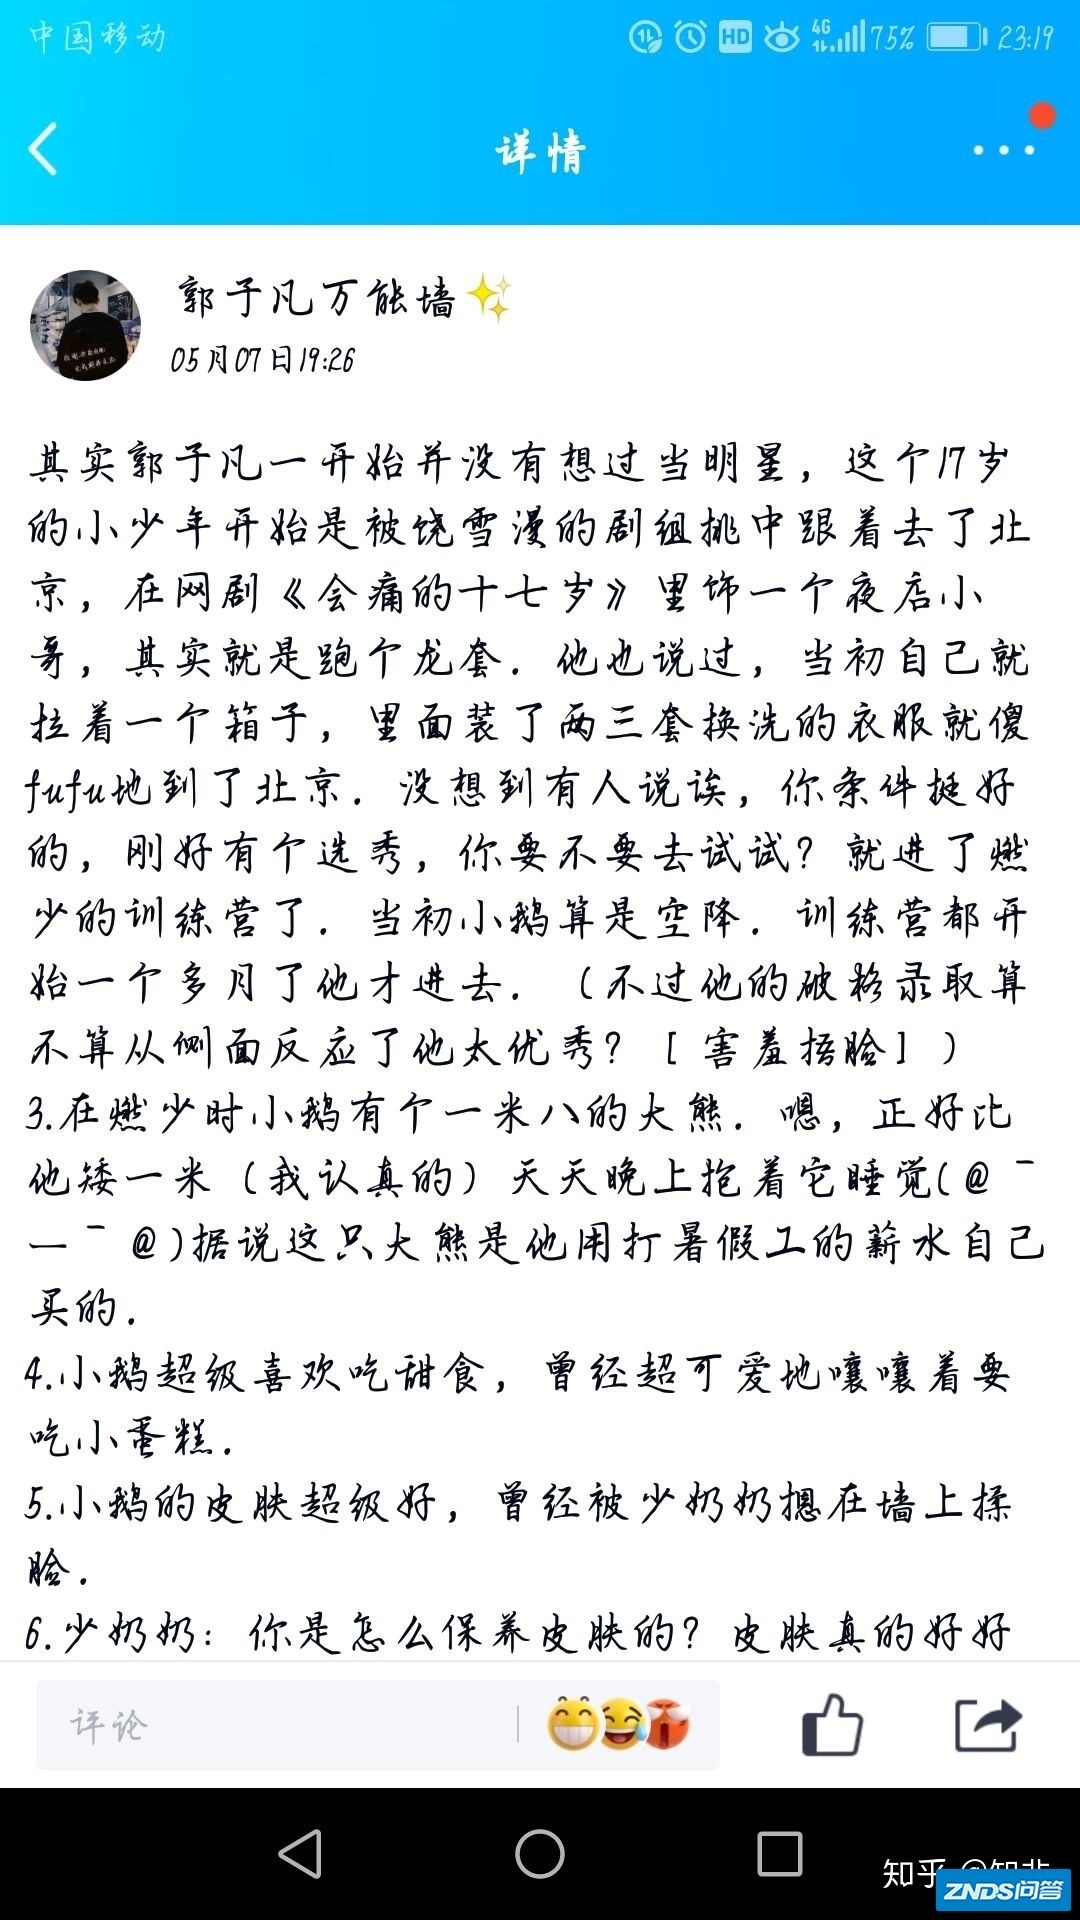 中国移动 HD 4G 75% 23:19
详情
郭子凡万能墙✨
05月07日19:26
其实郭子凡一开始并没有想过当明星，这个17岁
的小少年开始是被饶雪漫的剧组挑中跟着去了北
京，在网剧《会痛的十七岁》里饰一个夜店小
哥，其实就是跑个龙套．他也说过，当初自己就
拉着一个箱子，里面装了两三套换洗的衣服就傻
fufu地到了北京．没想到有人说诶，你条件挺好
的，刚好有个选秀，你要不要去试试？就进了燃
少的训练营了．当初小鹅算是空降．训练营都开
始一个多月了他才进去．（不过他的破格录取算
不算从侧面反应了他太优秀？［害羞捂脸］）
3.在燃少时小鹅有个一米八的大熊．嗯，正好比
他矮一米（我认真的）天天晚上抱着它睡觉(@￣
一￣@)据说这只大熊是他用打暑假工的薪水自己
买的．
4.小鹅超级喜欢吃甜食，曾经超可爱地嚷嚷着要
吃小蛋糕．
5.小鹅的皮肤超级好，曾经被少奶奶摁在墙上揉
脸．
6.少奶奶：你是怎么保养皮肤的？皮肤真的好好
评论
知乎
ZNDS问答